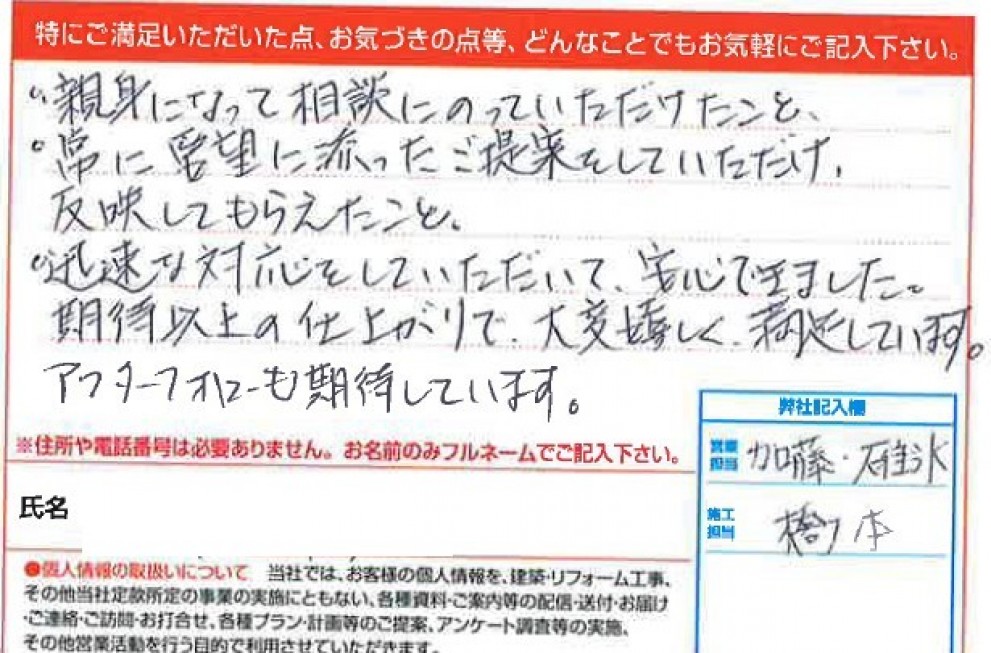 特にご満足いただいた点、お気づきの点等、どんなことでもお気軽にご記入下さい。
・親身になって相談にのっていただけたこと、
・常に要望に添ったご提案をしていただけ、
反映してもらえたこと。
・迅速な対応をしていただいて、安心できました。
期待以上の仕上がりで、大変嬉しく、満足しています。
アフターフォローも期待しています。
※住所や電話番号は必要ありません。お名前のみフルネームでご記入下さい。
氏名
弊社記入欄
営業担当 加藤・碓氷
施工担当 橋本
●個人情報の取扱いについて 当社では、お客様の個人情報を、建築・リフォーム工事、
その他当社定款所定の事業の実施にともない、各種資料・ご案内等の配信・送付・お届け
・ご連絡・ご訪問・お打合せ、各種プラン・計画等のご提案、アンケート調査等の実施、
その他営業活動を行う目的で利用させていただきます。